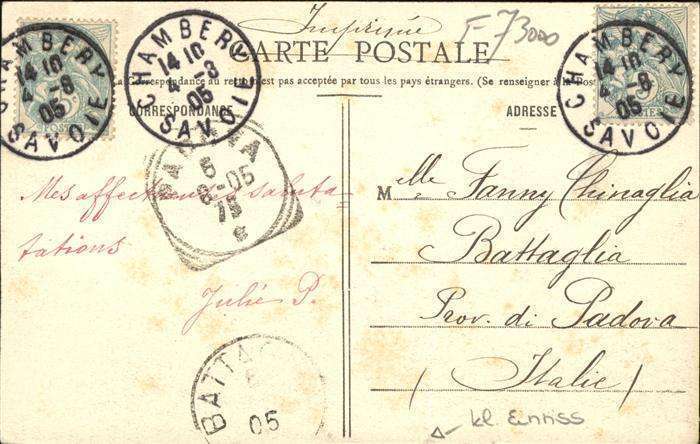 Imprimé
F-73000
CARTE POSTALE
La Correspondance au recto n'est pas acceptée par tous les pays étrangers. (Se renseigner à la Poste)
CORRESPONDANCE
ADRESSE
CHAMBERY
14 10
4 -8
05
SAVOIE
CHAMBERY
14 10
4 -8
05
SAVOIE
CHAMBERY
14 10
4 -8
05
SAVOIE
5
8-05
7
Mes affectueuses saluta-
tations
Julie P.
Melle Fanny Chinaglia
Battaglia
Prov. di Padova
(Italie)
BATTAG
05
kl. Einriss